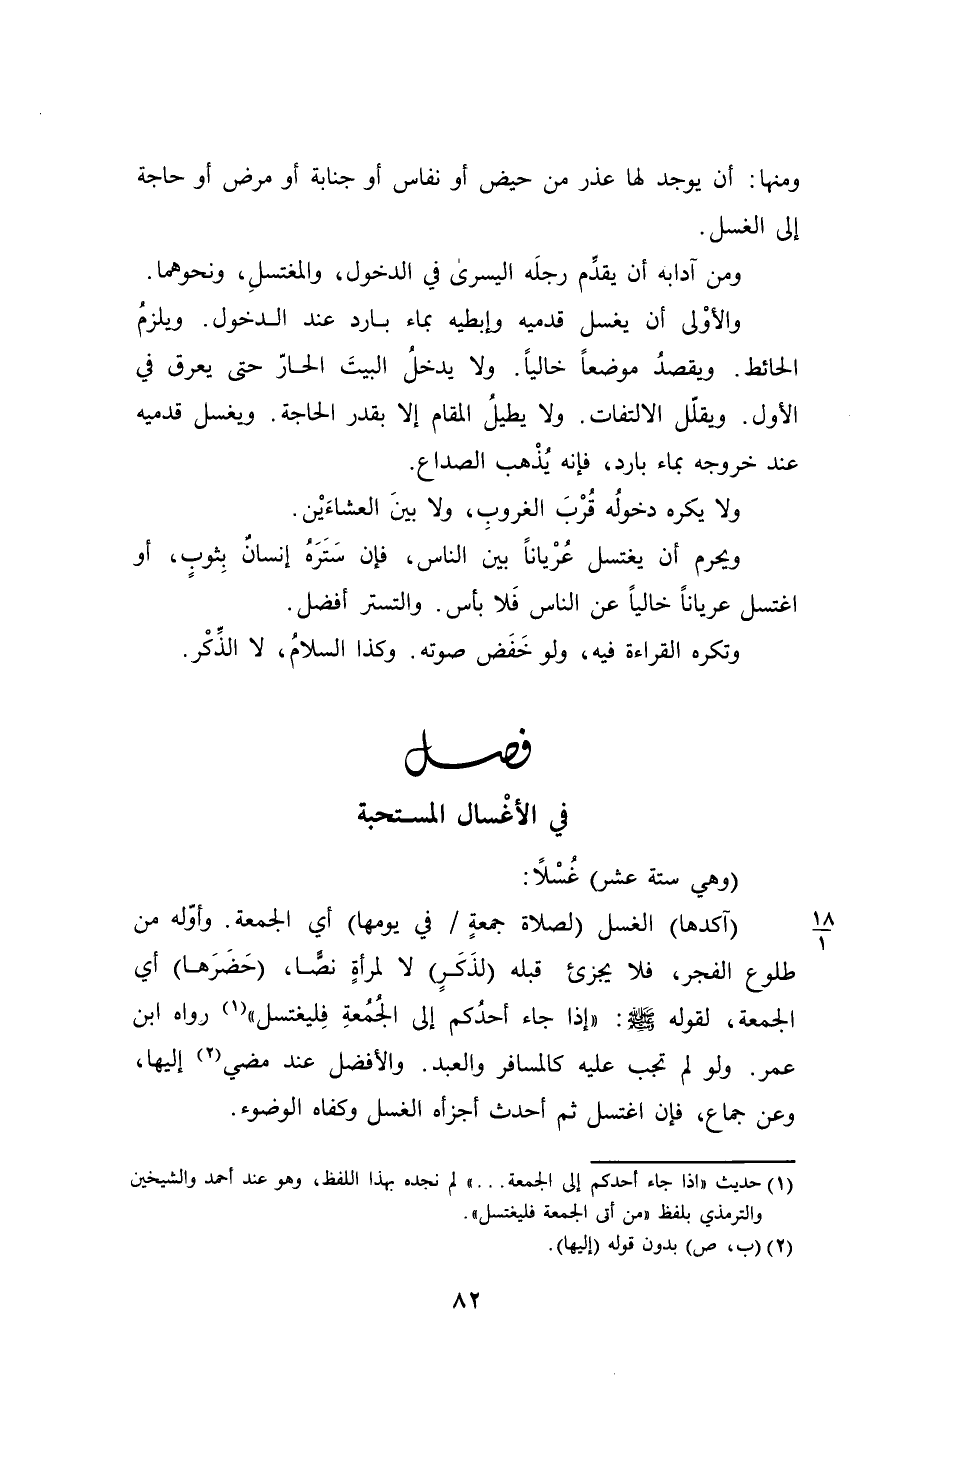 ومنها: أن يوجد لها عذر من حيض أو نفاس أو جنابة أو مرض أو حاجة
إلى الغسل.
ومن آدابه أن يقدِّم رجلَه اليسرىٰ في الدخول، والمغتسلِ، ونحوهما.
والأوْلى أن يغسل قدميه وإبطيه بماء بارد عند الدخول. ويلزمُ
الحائط. ويقصدُ موضعاً خالياً. ولا يدخلُ البيتَ الحارّ حتى يعرق في
الأول. ويقلّل الالتفات. ولا يطيلُ المقام إلا بقدر الحاجة. ويغسل قدميه
عند خروجه بماء بارد، فإنه يُذْهب الصداع.
ولا يكره دخولُه قُرْبَ الغروبِ، ولا بينَ العشاءَيْن.
ويحرم أن يغتسل عُرْياناً بين الناس، فإن سَتَرَهُ إنسانٌ بِثوبٍ، أو
اغتسل عرياناً خالياً عن الناس فَلا بأس. والتستر أفضل.
وتكره القراءة فيه، ولو خَفَض صوته. وكذا السلامُ، لا الذِّكْر.
فصل
في الأغْسال المستحبة
(وهي ستة عشر) غُسْلاً:
(آكدها) الغسل (لصلاة جمعةٍ / في يومها) أي الجمعة. وأوّله من
١٨
١
طلوع الفجر، فلا يجزئ قبله (لذَكَرٍ) لا لمرأةٍ نصًّا، (حَضَرَها) أي
الجمعة، لقوله ﷺ: «إذا جاء أحدُكم إلى الجُمُعةِ فِليغتسل»(١) رواه ابن
عمر. ولو لم تجب عليه كالمسافر والعبد. والأفضل عند مضي(٢) إليها،
وعن جماع، فإن اغتسل ثم أحدث أجزأه الغسل وكفاه الوضوء.
(١) حديث «اذا جاء أحدكم إلى الجمعة...» لم نجده بهذا اللفظ، وهو عند أحمد والشيخين
والترمذي بلفظ «من أتى الجمعة فليغتسل».
(٢) (ب، ص) بدون قوله (إليها).
٨٢